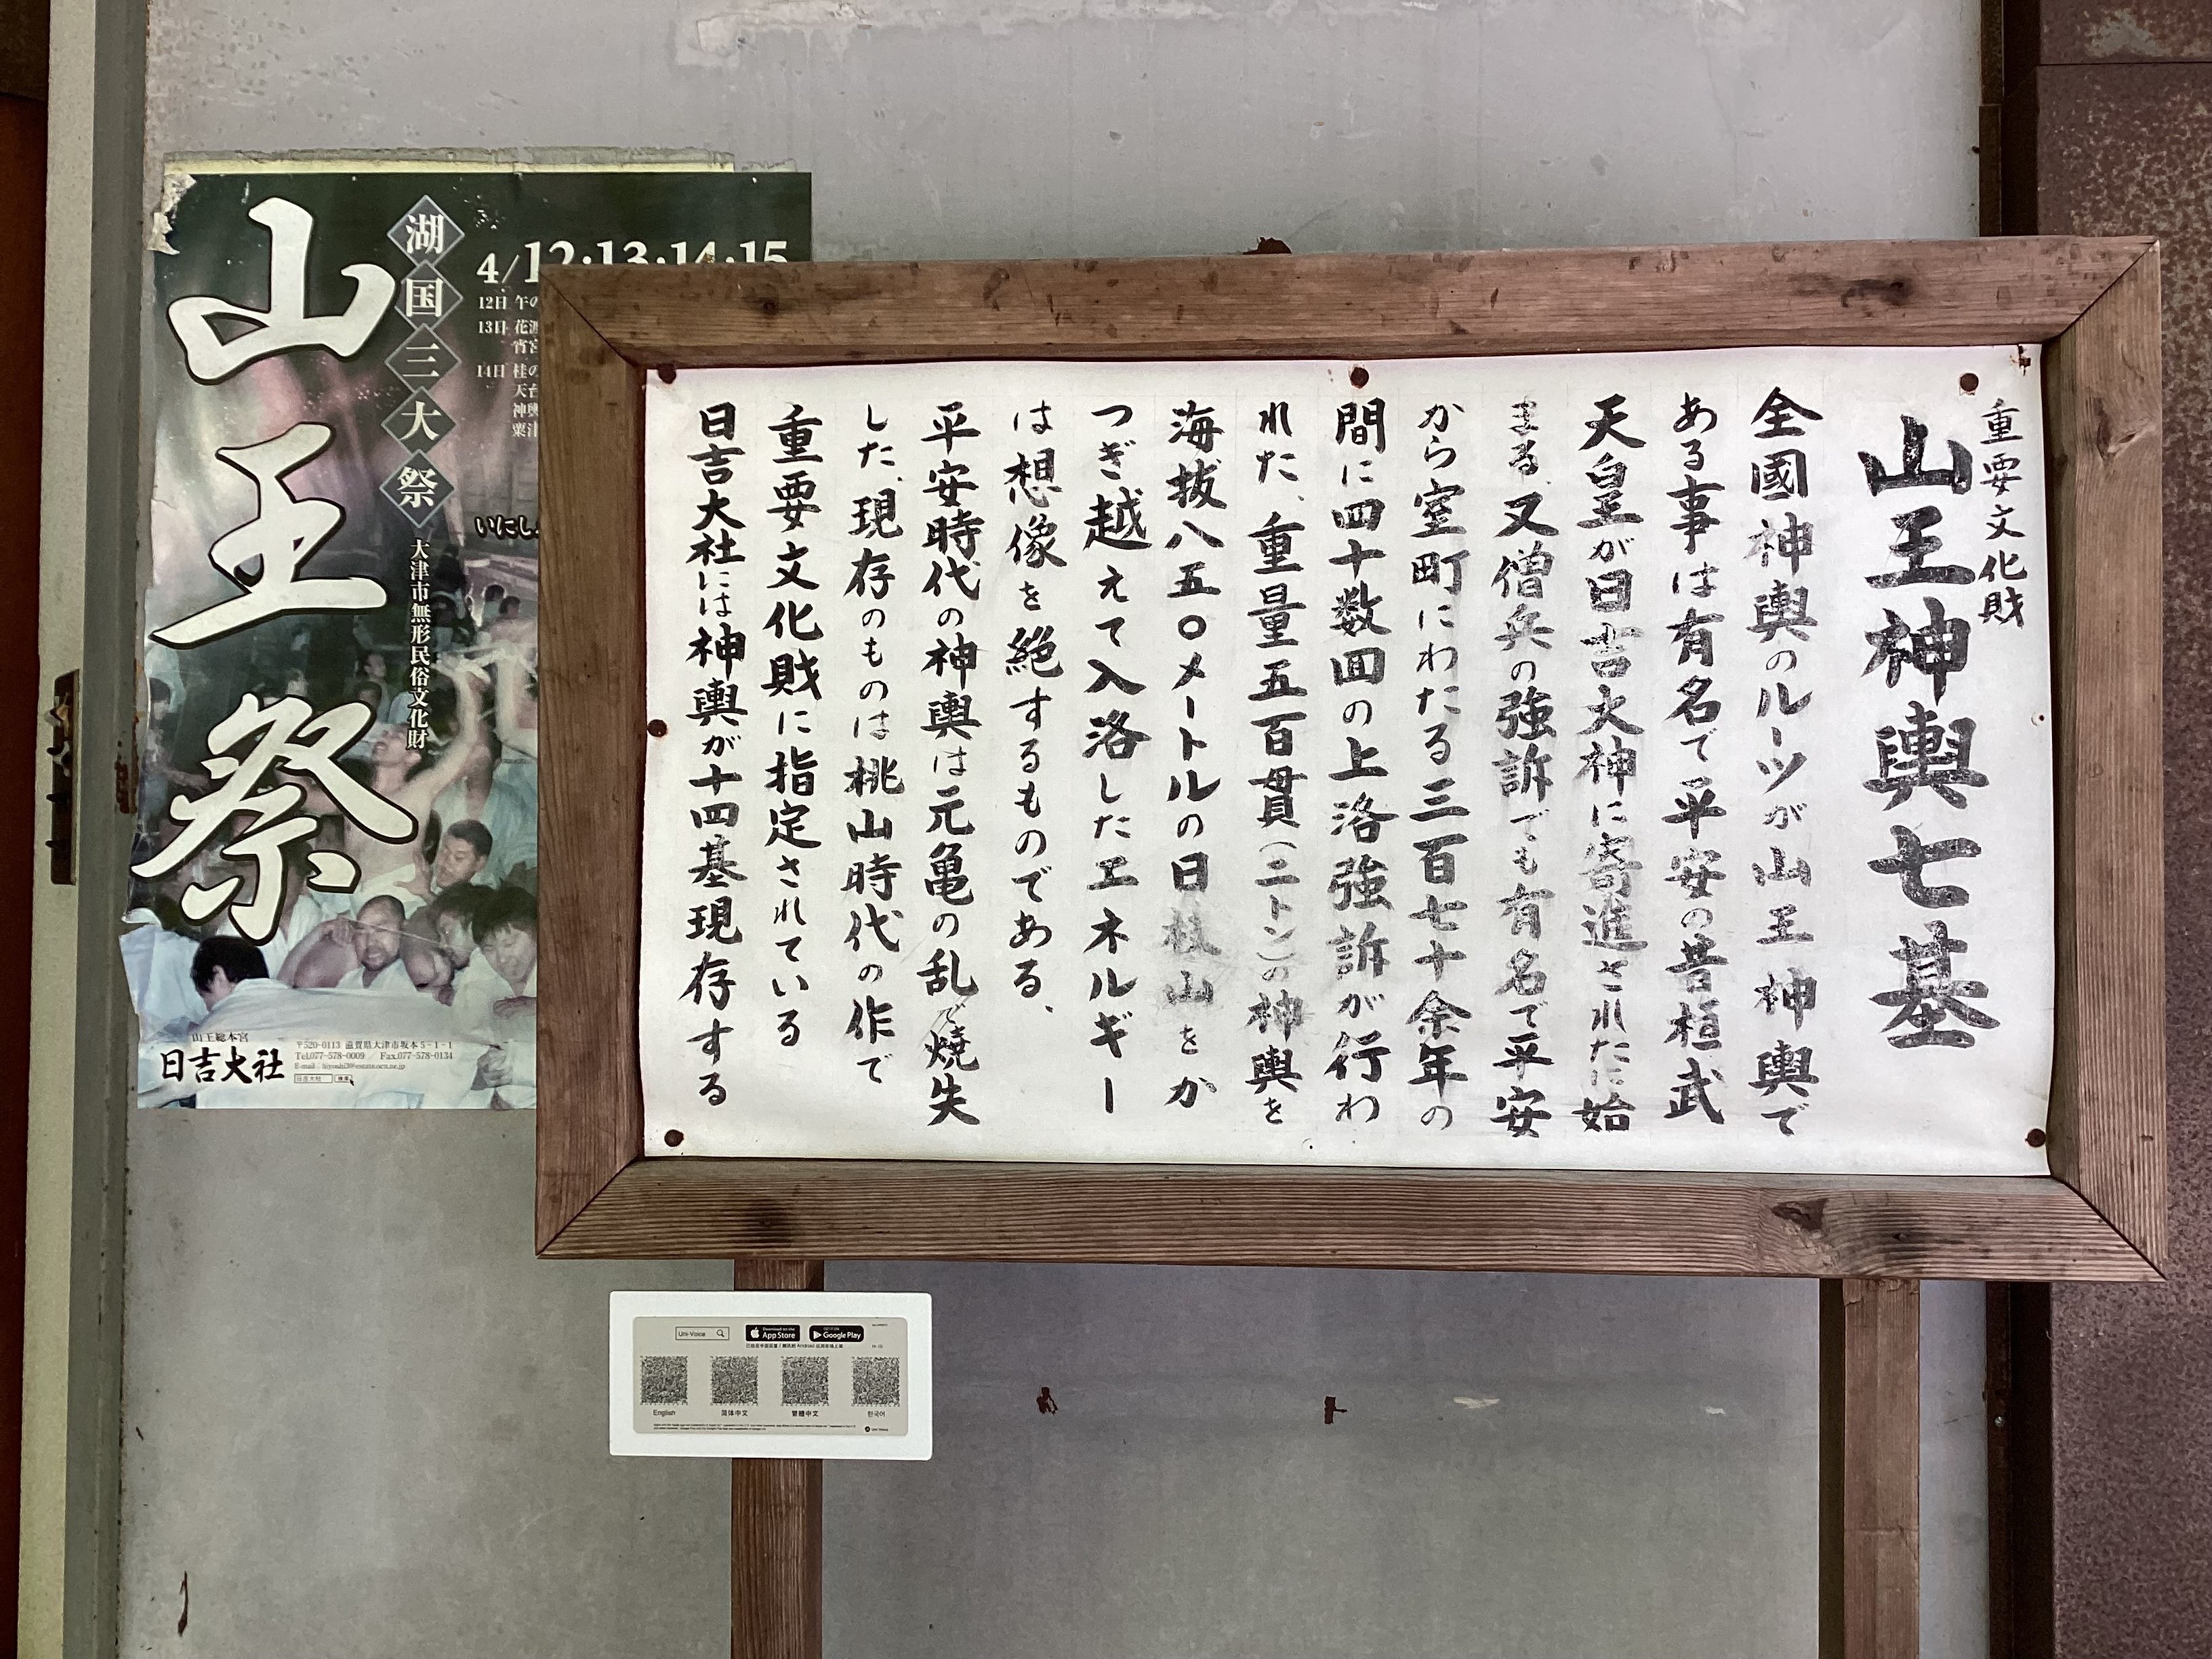 重要文化財
山王神輿七基
全國神輿のルーツが山王神輿で
ある事は有名で平安の昔桓武
天皇が日吉大神に寄進されたに始
まる、又僧兵の強訴でも有名で平安
から室町にわたる三百七十余年の
間に四十数回の上洛強訴が行わ
れた、重量五百貫(二トン)の神輿を
海拔八五〇メートルの日枝山をか
つぎ越えて入洛したエネルギー
は想像を絶するものである、
平安時代の神輿は元亀の乱で焼失
した、現存のものは桃山時代の作で
重要文化財に指定されている
日吉大社には神輿が十四基現存する
山王祭
湖国三大祭
大津市無形民俗文化財
4/12・13・14・15
12日 午の
13日 花渡
宵宮
14日 桂の
天台
神輿
粟津
いにし
山王総本宮
日吉大社
〒520-0113 滋賀県大津市坂本5-1-1
Tel.077-578-0009 / Fax.077-578-0134
日吉大社 検索
Uni-Voice
Download on the App Store
Google Play
English
简体中文
繁體中文
한국어